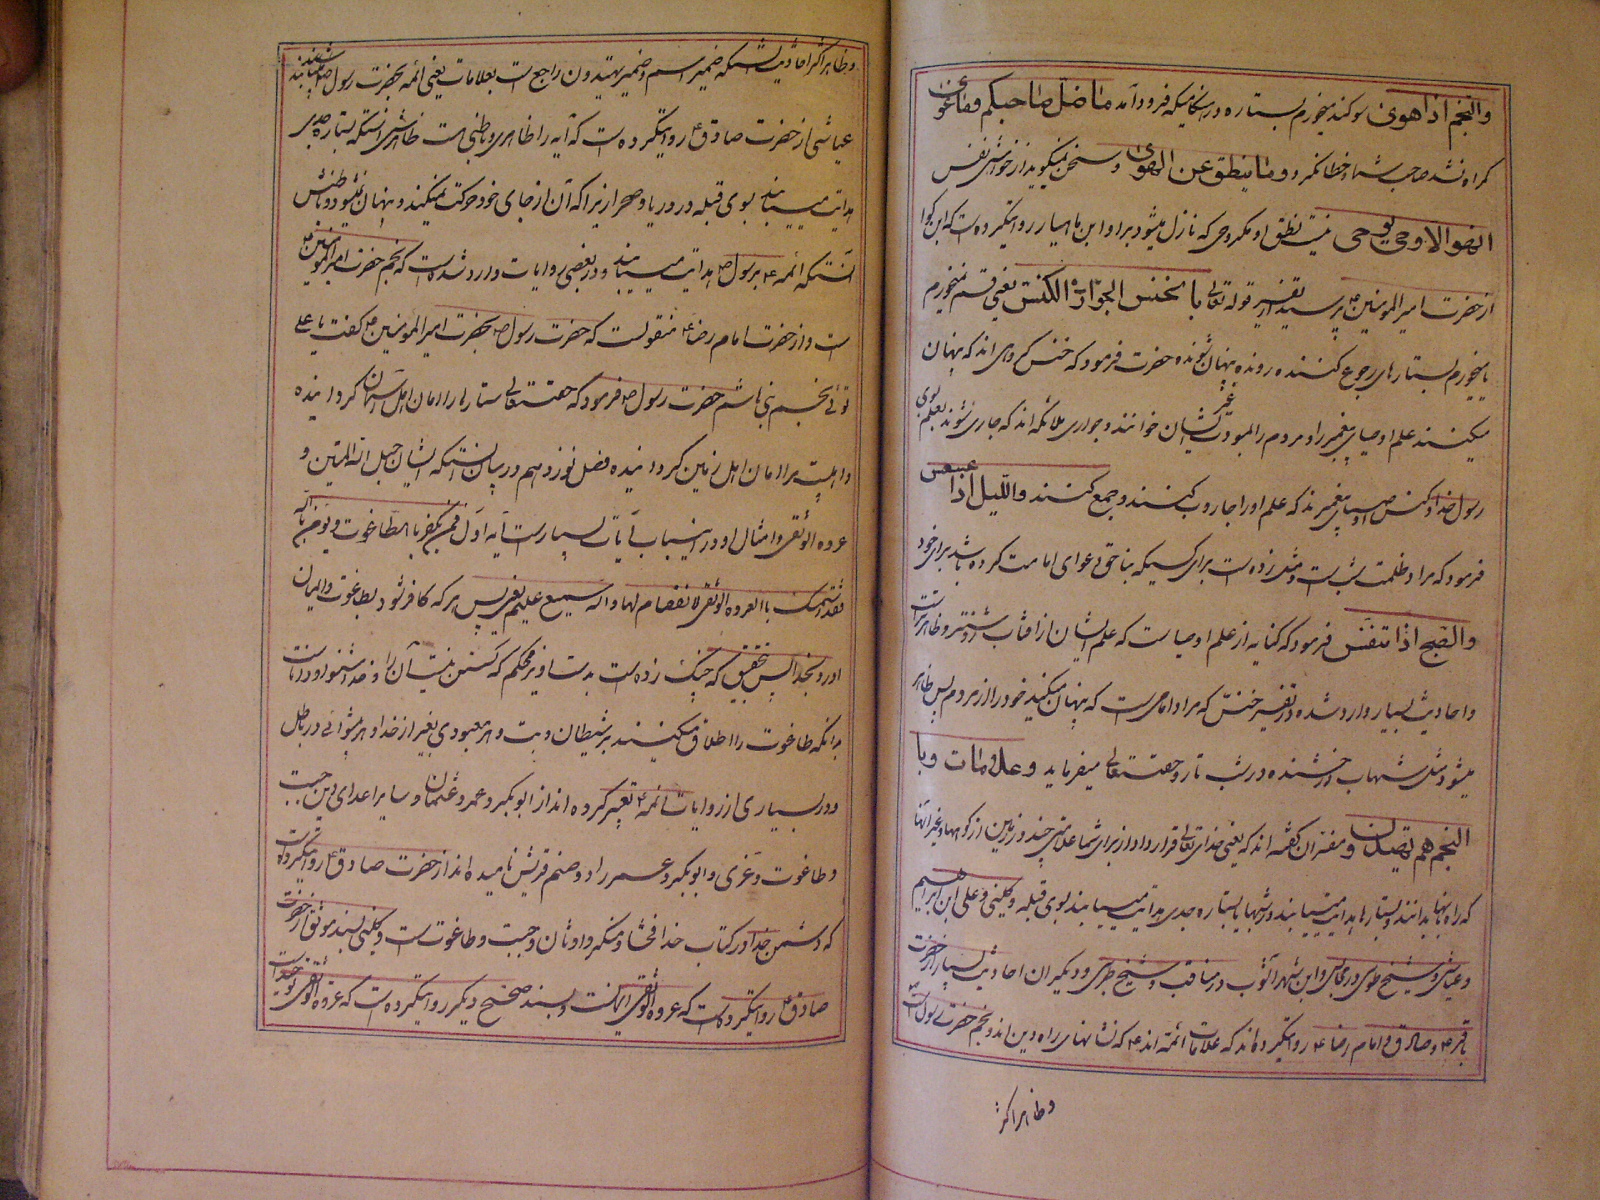 والنجم اذا هوی سوکند میخورم بستاره در هنکامیکه فرود آمد ما ضل صاحبکم و ما غوی
کمراه نشد صاحب شما و خطا نکرد و ما ینطق عن الهوی و سخن نمیکوید از خواهش نفس
ان هو الا وحی یوحی نیست نطق او مکر وحی که نازل میشود بر او ابن ماهیار روایتکرده است که ابن کوا
از حضرت امیر المومنین ع پرسید از تفسیر قوله تعالی بالخنس الجوار الکنس یعنی قسم میخورم
یا میخورم بستارهای رجوع کننده رونده پنهان شونده حضرت فرمود که خنس کروهی اند که پنهان
میکنند علم اوصیای پیغمبر را و مردم را بمودت غیر ایشان خوانند و جواری ملائکه اند که جاری شوند بعلم بسوی
رسول خدا و کنس اوصیای پیغمبرند که علم او را جاروب کنند و جمع کنند واللیل اذا عسعس
فرمود که مراد ظلمت شب است و مثلی زده است برای کسیکه بناحق دعوای امامت کرده باشد برای خود
والصبح اذا تنفس فرمود که کنایه از علم اوصیا است که علم ایشان از افتاب روشنتر و ظاهرتر است
و احادیث بسیار وارد شده در تفسیر خنس که مراد امامی است که پنهان میکند خود را از مردم پس ظاهر
میشود مثل شهاب درخشنده در شب تار و حقتعالی میفرماید و علامات و با
لنجم هم یهتدون و مفسران کفته اند که یعنی خدای تعالی قرار داد از برای شما علامتی چند در زمین از کوهها و غیر انها
که راه بانها بدانند و بستارها هدایت مییابند و در شبها بستاره جدی هدایت مییابند بسوی قبله و کلینی و علی ابن ابراهیم
و عیاشی و شیخ طوسی در مجالس و ابن شهر آشوب در مناقب و شیخ طبرسی و دیکران احادیث بسیار از حضرت
باقر ع و صادق و امام رضا ع روایتکرده اند که علامات ائمه اند ع که نشانهای راه دین اند و نجم حضرت رسول است
و ظاهر اکثر
و ظاهر اکثر احادیث آنستکه ضمیر هم و ضمیر یهتدون راجع است بعلامات یعنی ائمه بحضرت رسول ص هدایت یافتند
عیاشی از حضرت صادق ع روایتکرده است که آیه را ظاهری و باطنی است ظاهرش آنستکه بستاره جدی
هدایت مییابند بسوی قبله در دریا و صحرا زیرا که آن از جای خود حرکت نمیکند و پنهان نمیشود و باطنش
آنستکه ائمه ع برسول ص هدایت مییابند و در بعضی روایات وارد شده است که نجم حضرت امیر المومنین ع
است و از حضرت امام رضا ع منقولست که حضرت رسول ص بحضرت امیر المومنین ع کفت یا علی
توئی نجم بنی هاشم حضرت رسول ص فرمود که حقتعالی ستارها را امان اهل آسمان کردانیده
و اهلبیت مرا امان اهل زمین کردانیده فصل نوزدهم در بیان آنستکه ایشان حبل الله المتین و
عروه الوثقی و امثال او و در اینباب آیات بسیار است آیه اول فمن یکفر بالطاغوت و یومن بالله
فقد استمسک بالعروه الوثقی لا انفصام لها و الله سمیع علیم یعنی پس هر که کافر شود بطاغوت و ایمان
آورد بخدا پس بتحقیق که چنک زده است بدستاویز محکم که کسستن نیست آن را و خدا شنوا و داناست
بدانکه طاغوت را اطلاق میکنند بر شیطان و بت و هر معبودی بغیر از خدا و هر پیشوائی در باطل
و در بسیاری از روایات ائمه ع تعبیر کرده اند از ابوبکر و عمر و عثمان و سایر اعدای دین بجبت
و طاغوت و عزی و ابوبکر و عمر را دو صنم قریش نامیده اند از حضرت صادق ع روایتکرده است
که دشمن خدا در کتاب خدا فحشا و منکر و اوثان و جبت و طاغوت است و کلینی بسند موثق از حضرت
صادق ع روایتکرده است که عروه الوثقی ایمانست و بسند صحیح دیکر روایتکرده است که عروه الوثقی توحید است